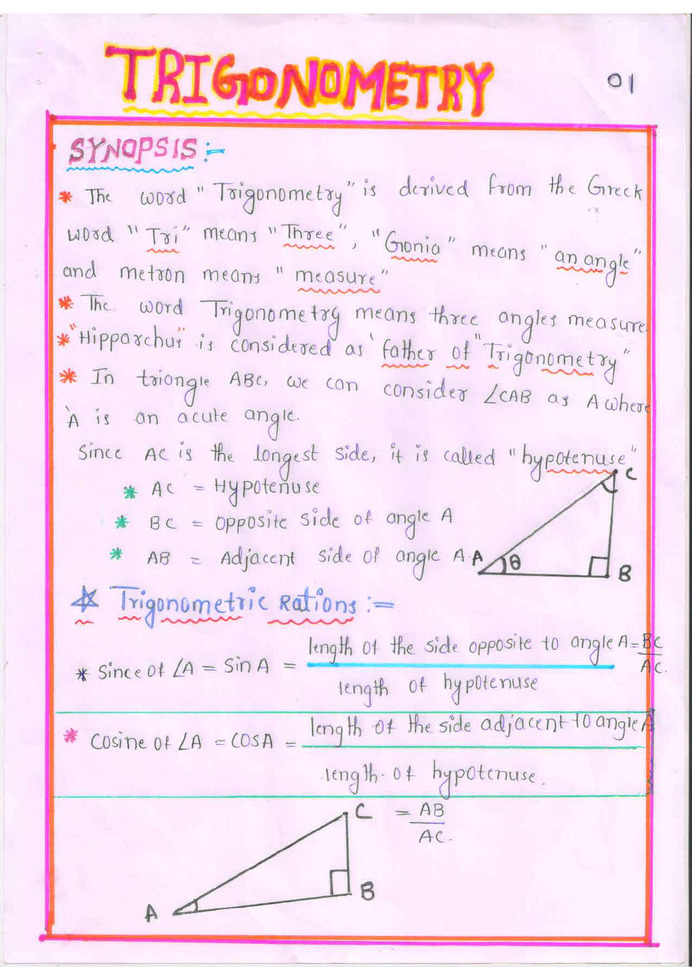 TRIGONOMETRY
01
SYNOPSIS :-
* The word "Trigonometry" is derived from the Greek
word "Tri" means "Three", "Gonia" means "an angle"
and metron means "measure"
* The word Trigonometry means three angles measure.
* "Hipparchus" is considered as 'father of "Trigonometry"
* In triangle ABC, we can consider ∠CAB as A where
'A is an acute angle.
Since AC is the longest side, it is called "hypotenuse"
* AC = Hypotenuse
* BC = Opposite side of angle A
* AB = Adjacent side of angle A.
C
A
θ
B
☆ Trigonometric Rations :=
* Since of ∠A = Sin A = length of the side opposite to angle A / length of hypotenuse = BC / AC.
* Cosine of ∠A = COSA = length of the side adjacent to angle A / length of hypotenuse.
= AB / AC.
C
A
B